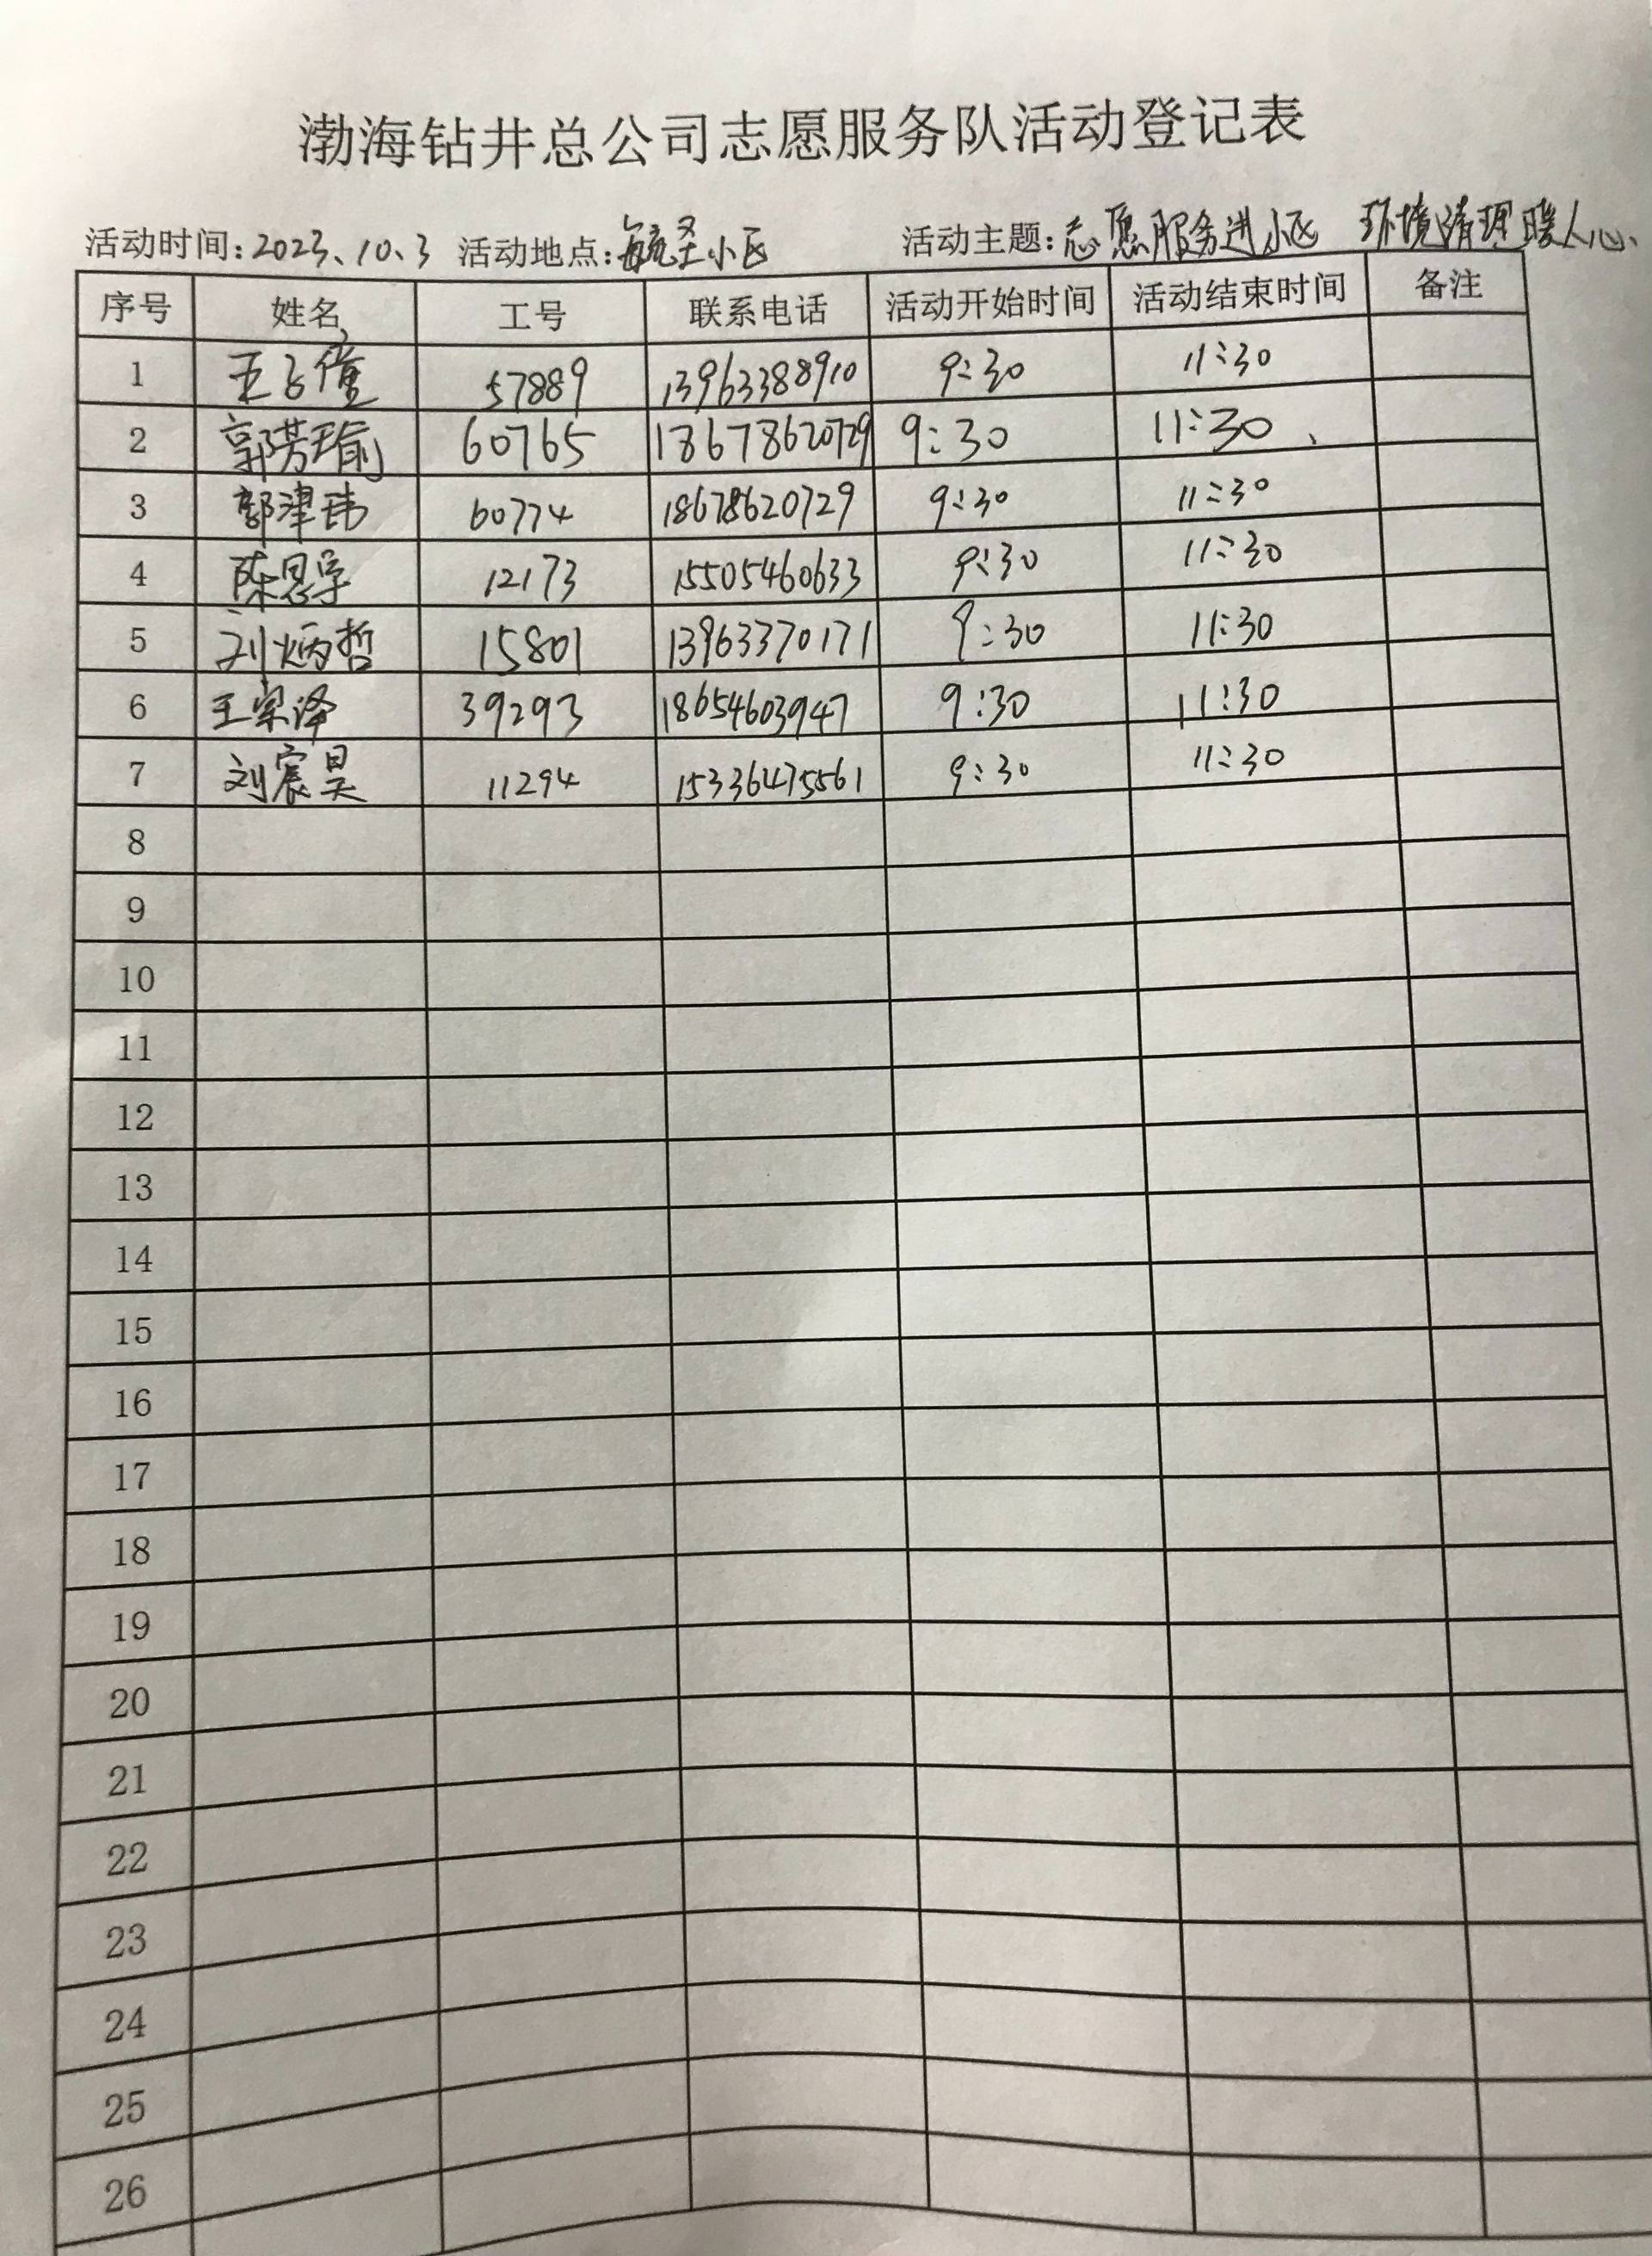 渤海钻井总公司志愿服务队活动登记表
活动时间:2023、10、3 活动地点:毓圣小区 活动主题:志愿服务进小区 环境清理暖人心、
序号 姓名 工号 联系电话 活动开始时间 活动结束时间 备注
1 57889 13963388910 9:30 11:30
2 郭芳瑜 60765 18678620729 9:30 11:30、
3 郭津玮 60774 18678620729 9:30 11:30
4 陈思宇 12173 15505460633 9:30 11:30
5 刘炳哲 15801 13963370171 9:30 11:30
6 王宗泽 39293 18654603947 9:30 11:30
7 刘宸昊 11294 15336475561 9:30 11:30
8
9
10
11
12
13
14
15
16
17
18
19
20
21
22
23
24
25
26